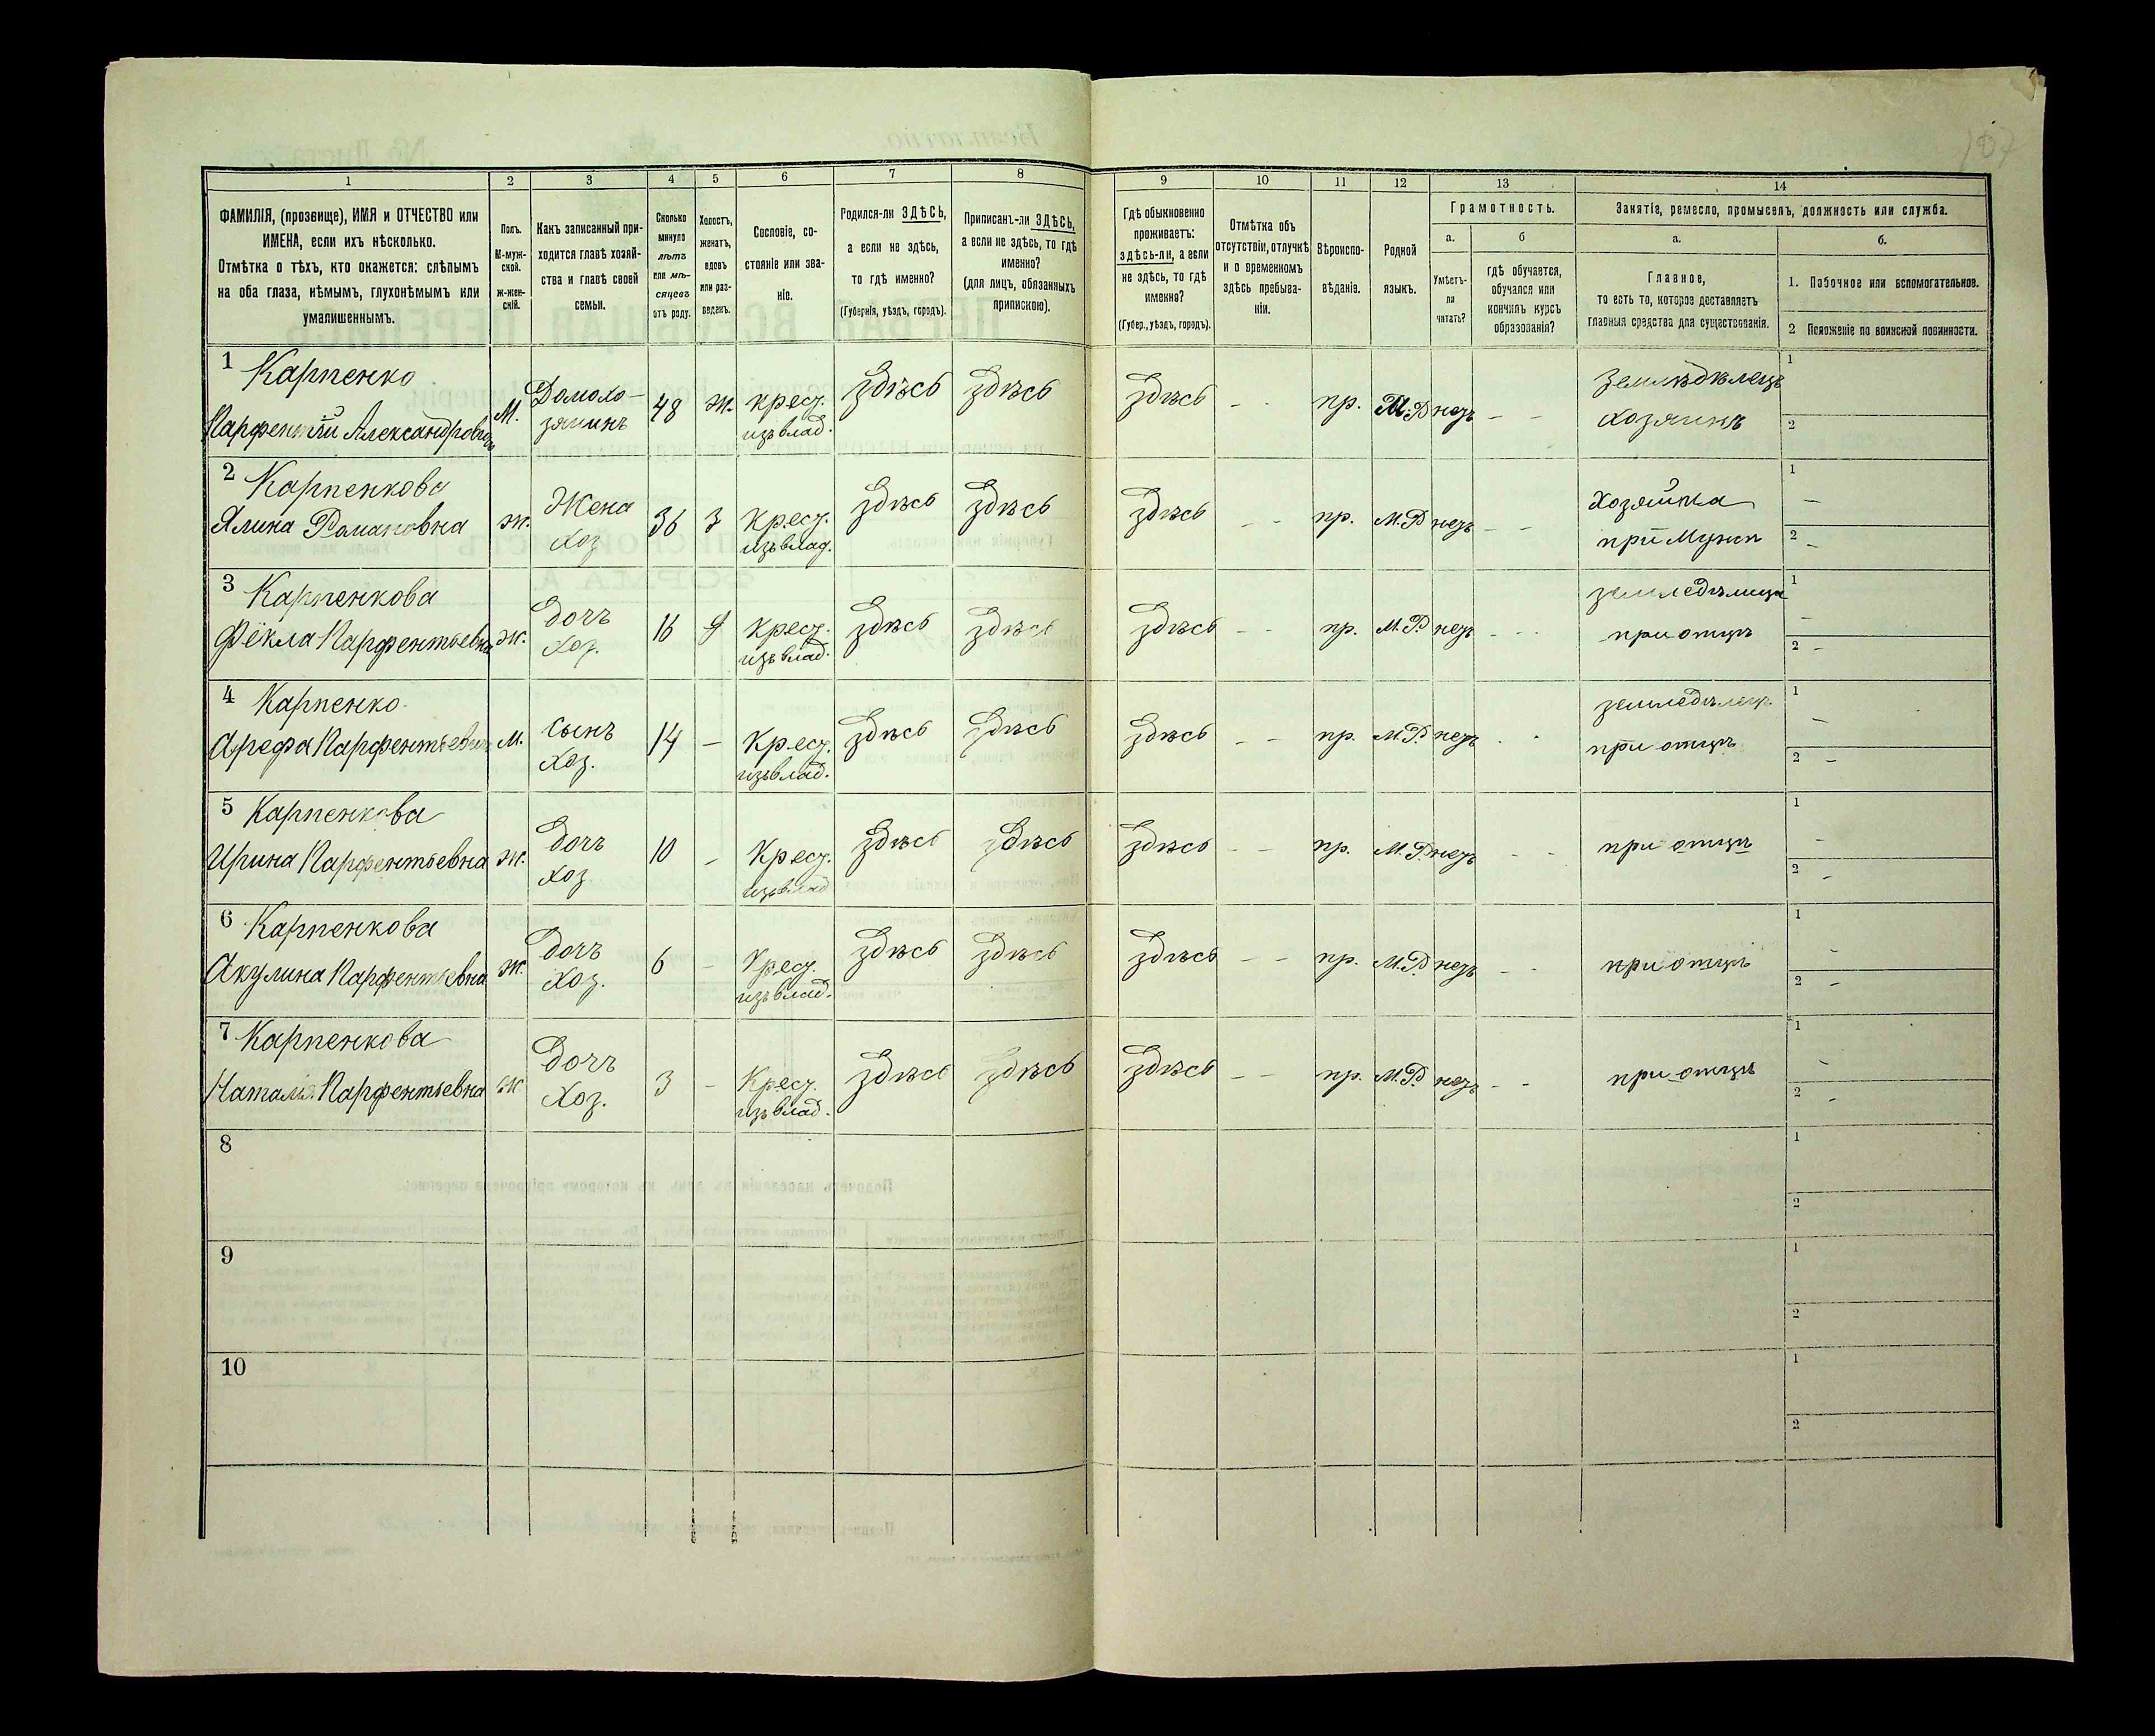 1 2 3 4 5 6 7 8 9 10 11 12 13 14
ФАМИЛІЯ, (прозвище), ИМЯ и ОТЧЕСТВО или
ИМЕНА, если ихъ нѣсколько.
Отмѣтка о тѣхъ, кто окажется: слѣпымъ
на оба глаза, нѣмымъ, глухонѣмымъ или
умалишеннымъ.
Полъ.
М-муж-
ской.
ж-жен-
скій.
Какъ записанный при-
ходится главѣ хозяй-
ства и главѣ своей
семьи.
Сколько
минуло
лѣтъ
или мѣ-
сяцевъ
отъ роду.
Холостъ,
женатъ,
вдовъ
или раз-
веденъ.
Сословіе, со-
стояніе или зва-
ніе.
Родился-ли ЗДѢСЬ,
а если не здѣсь,
то гдѣ именно?
(Губернія, уѣздъ, городъ).
Приписанъ-ли ЗДѢСЬ,
а если не здѣсь, то гдѣ
именно?
(для лицъ, обязанныхъ
припискою).
Гдѣ обыкновенно
проживаетъ:
здѣсь-ли, а если
не здѣсь, то гдѣ
именно?
(Губер., уѣздъ, городъ).
Отмѣтка объ
отсутствіи, отлучкѣ
и о временномъ
здѣсь пребыва-
ніи.
Вѣроиспо-
вѣданіе.
Родной
языкъ.
Грамотность.
а. б
Умѣетъ-
ли
читать?
гдѣ обучается,
обучался или
кончилъ курсъ
образованія?
Занятіе, ремесло, промыселъ, должность или служба.
а. б.
Главное,
то есть то, которое доставляетъ
главныя средства для существованія.
1. Побочное или вспомогательное.
2 Положеніе по воинской повинности.
1 Карпенко
Парфентій Александровичъ М. Домохо-
зяинъ 48 ж. крест.
изъ влад. здѣсь здѣсь здѣсь - - пр. М.Р нетъ - - Земледѣлецъ
хозяинъ 1
2
2 Карпенкова
Ялина Романовна ж. Жена
хоз 36 з крест.
изъ влад. здѣсь здѣсь здѣсь - - пр. М.Р нетъ - - Хозяйка
при Мужѣ 1 -
2 -
3 Карпенкова
Фёкла Парфентьевна ж. дочъ
хоз. 16 д крест.
изъ влад. здѣсь здѣсь здѣсь - - пр. М.Р. нетъ - - земледѣлица
при отцѣ 1 -
2 -
4 Карпенко
Арефа Парфентьевич м. сынъ
хоз. 14 - крест.
изъ влад. здѣсь здѣсь здѣсь - - пр. М.Р. нетъ - - земледѣлец.
при отцѣ 1 -
2 -
5 Карпенкова
Ирина Парфентьевна ж. дочъ
хоз 10 - крест.
изъ влад здѣсь здѣсь здѣсь - - пр. М.Р. нетъ - - при отцѣ 1 -
2 -
6 Карпенкова
Акулина Парфентьевна ж. дочъ
хоз. 6 - крест.
изъ влад. здѣсь здѣсь здѣсь - - пр. М.Р. нетъ - - при отцѣ 1 -
2 -
7 Карпенкова
Наталия Парфентьевна ж дочъ
хоз. 3 - крест.
изъ влад. здѣсь здѣсь здѣсь - - пр. М.Р. нетъ - - при отцѣ 1 -
2 -
8 1
2
9 1
2
10 1
2